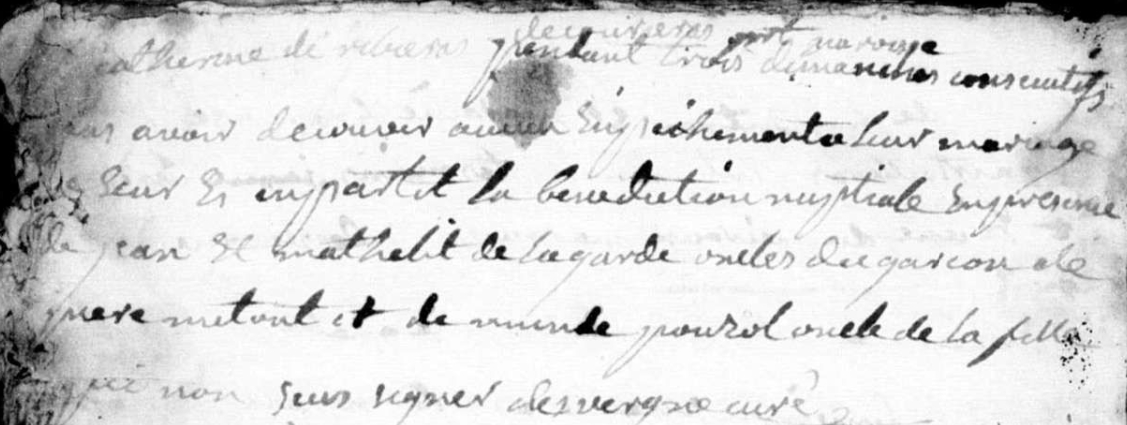 catherine de riberes pendant trois dimanches consecutifs
avoir decouvir aucun Enpechement a leur mariage
leur Ei enpartit la benediction nuptiale Enpresence
de jean Et mathelit de lagarde oncles du garcon de
metout et de pourol oncle de la fille
qui non seus signer desvergne curé